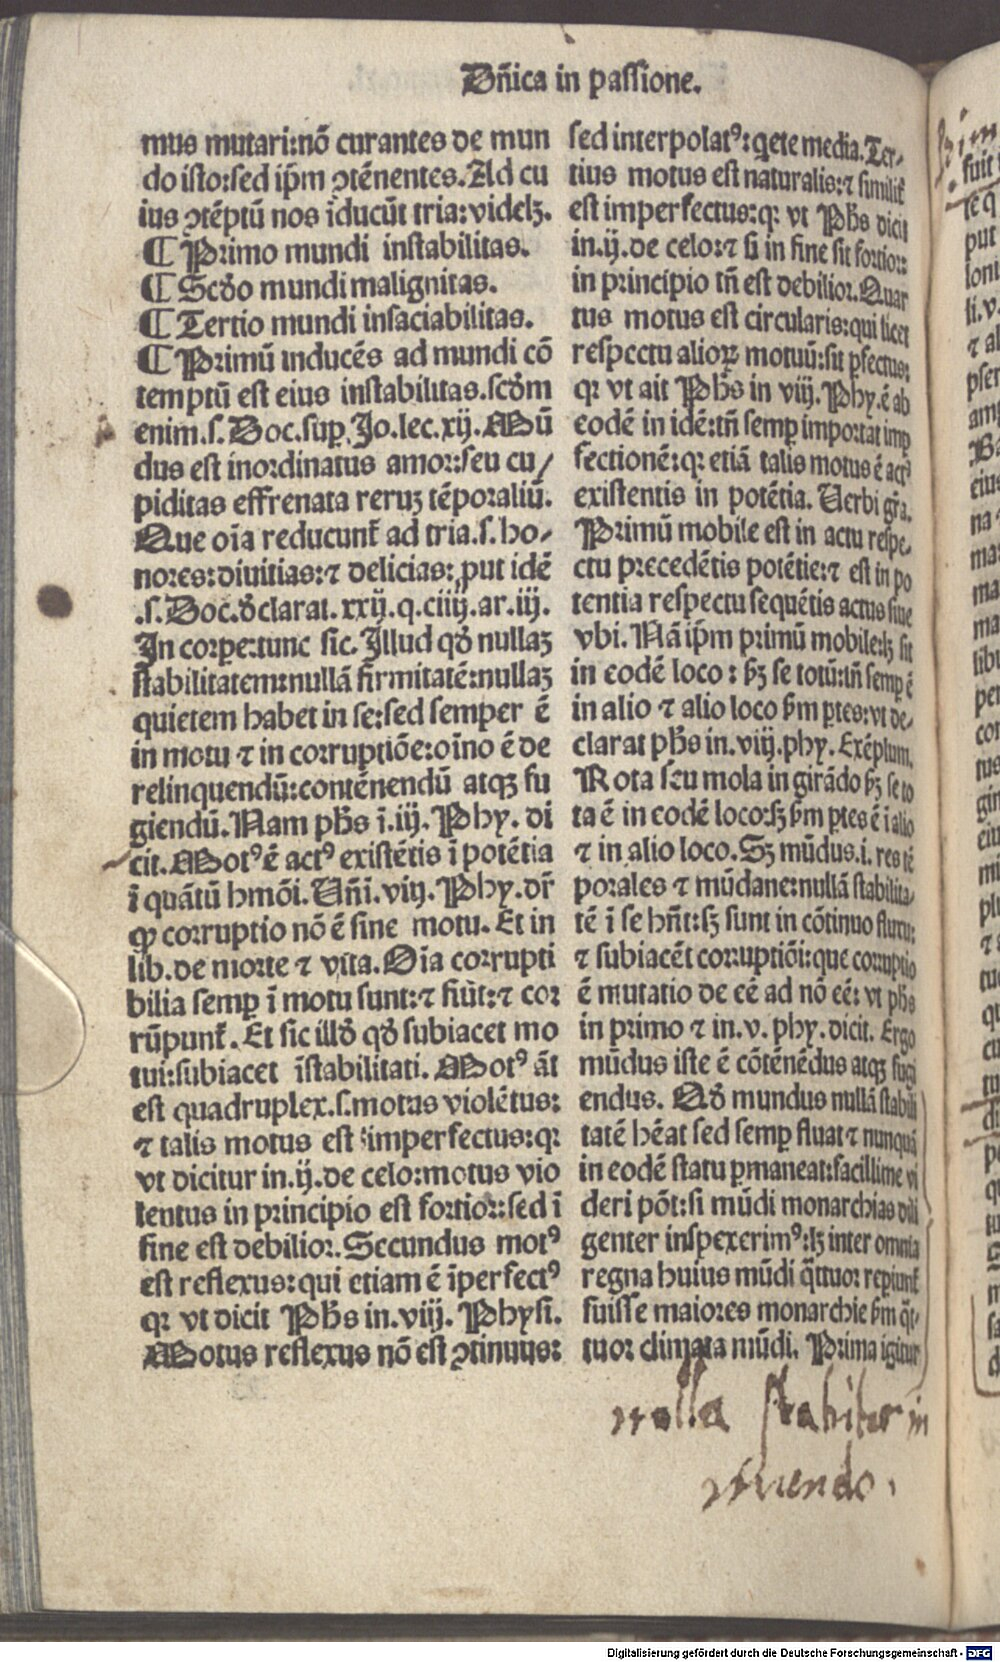 Dn̄ica in passione.
mus mutari:nō curantes de mun
do isto:sed ip̄m ꝯtēnentes. Ad cu
ius ꝯtēptū nos īducūt tria: videlꝫ.
¶ Primo mundi instabilitas.
¶ Scd̄o mundi malignitas.
¶ Tertio mundi insaciabilitas.
¶ Primū inducēs ad mundi cō
temptū est eius instabilitas. scd̄m
enim. s. Doc. suꝑ. Jo. lec. xij. Mū
dus est inordinatus amor:seu cu/
piditas effrenata reruꝫ tēporaliū.
Que oīa reducunt̄ ad tria. s. ho-
nores: diuitias: ⁊ delicias: ꝓut idē
.s. Doc. d̄clarat. xxij. q. ciiij. ar. iij.
In corpe: tunc sic. Illud qd̄ nullaꝫ
stabilitatem:nullā firmitatē:nullaꝫ
quietem habet in se:sed semper ē
in motu ⁊ in corruptiōe:oīno ē de
relinquendū:contēnendū atqꝫ fu
giendū. Nam ph̄s ī. iij. Phy. di
cit. Motꝰ ē actꝰ existētis ī potētia
ī quātū hmōi. Un̄. ī. viij. Phy. dr̄
ꝙ corruptio nō ē sine motu. Et in
lib. de morte ⁊ vita. Oīa corrupti
bilia semꝑ ī motu sunt: ⁊ fiūt: ⁊ cor
rūpunt̄. Et sic illd̄ qd̄ subiacet mo
tui:subiacet īstabilitati. Motꝰ āt
est quadruplex. s. motus violētus:
⁊ talis motus est imperfectus: qꝛ
vt dicitur in. ij. de celo: motus vio
lentus in principio est fortior: sed ī
fine est debilior. Secundus motꝰ
est reflexus: qui etiam ē īperfectꝰ
qꝛ vt dicit Ph̄s in. viij. Physi.
Motus reflexus nō est ꝯtinuus:
sed interpolatꝰ: qete media. Ter-
tius motus est naturalis: ⁊ similit̄
est imperfectus: qꝛ vt Ph̄s dicit
in. ij. de celo: ⁊ si in fine sit fortior:
in principio tn̄ est debilior. Quar
tus motus est circularis: qui licet
respectu alioꝝ motuū: sit ꝑfectus:
qꝛ vt ait Ph̄s in viij. Phy. ē ab
eodē in idē: tn̄ semꝑ importat imꝑ
fectionē: qꝛ etiā talis motus ē actꝰ
existentis in potētia. Uerbi gr̄a.
Primū mobile est in actu respe-
ctu precedētis potētie: ⁊ est in po
tentia respectu sequētis actus siue
vbi. Nā ip̄m primū mobile: lꝫ sit
in eodē loco: ẜꝫ se totū: tn̄ semꝑ ē
in alio ⁊ alio loco ẜm ꝑtes: vt de-
clarat ph̄s in. viij. phy. Exēplum.
Rota seu mola in girādo ẜꝫ se to
ta ē in eodē loco: sꝫ ẜm ꝑtes ē ī alio
⁊ in alio loco. Sꝫ mūdus. i. res tē
porales ⁊ mūdane: nullā stabilita-
tē ī se hn̄t: sꝫ sunt in cōtinuo fluxu:
⁊ subiacēt corruptiōi: que corruptio
ē mutatio de eē ad nō eē: vt ph̄s
in primo ⁊ in. v. phy. dicit. Ergo
mūdus iste ē cōtēnēdus atqꝫ fugi
endus. Qd̄ mundus nullā stabili
tatē hēat sed semꝑ fluat ⁊ nunquā
in eodē statu ꝑmaneat: facillime vi
deri pōt: si mūdi monarchias dili
genter inspexerimꝰ: lꝫ inter omnia
regna huius mūdi q̄ttuor reꝑiunt̄
fuisse maiores monarchie ẜm q̄t-
tuor climata mūdi. Prima igitur
nulla stabilitas in
mundo.
Digitalisierung gefördert durch die Deutsche Forschungsgemeinschaft - DFG